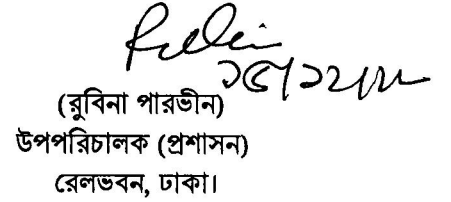 (রুবিনা পারভীন)
উপপরিচালক (প্রশাসন)
রেলভবন, ঢাকা।